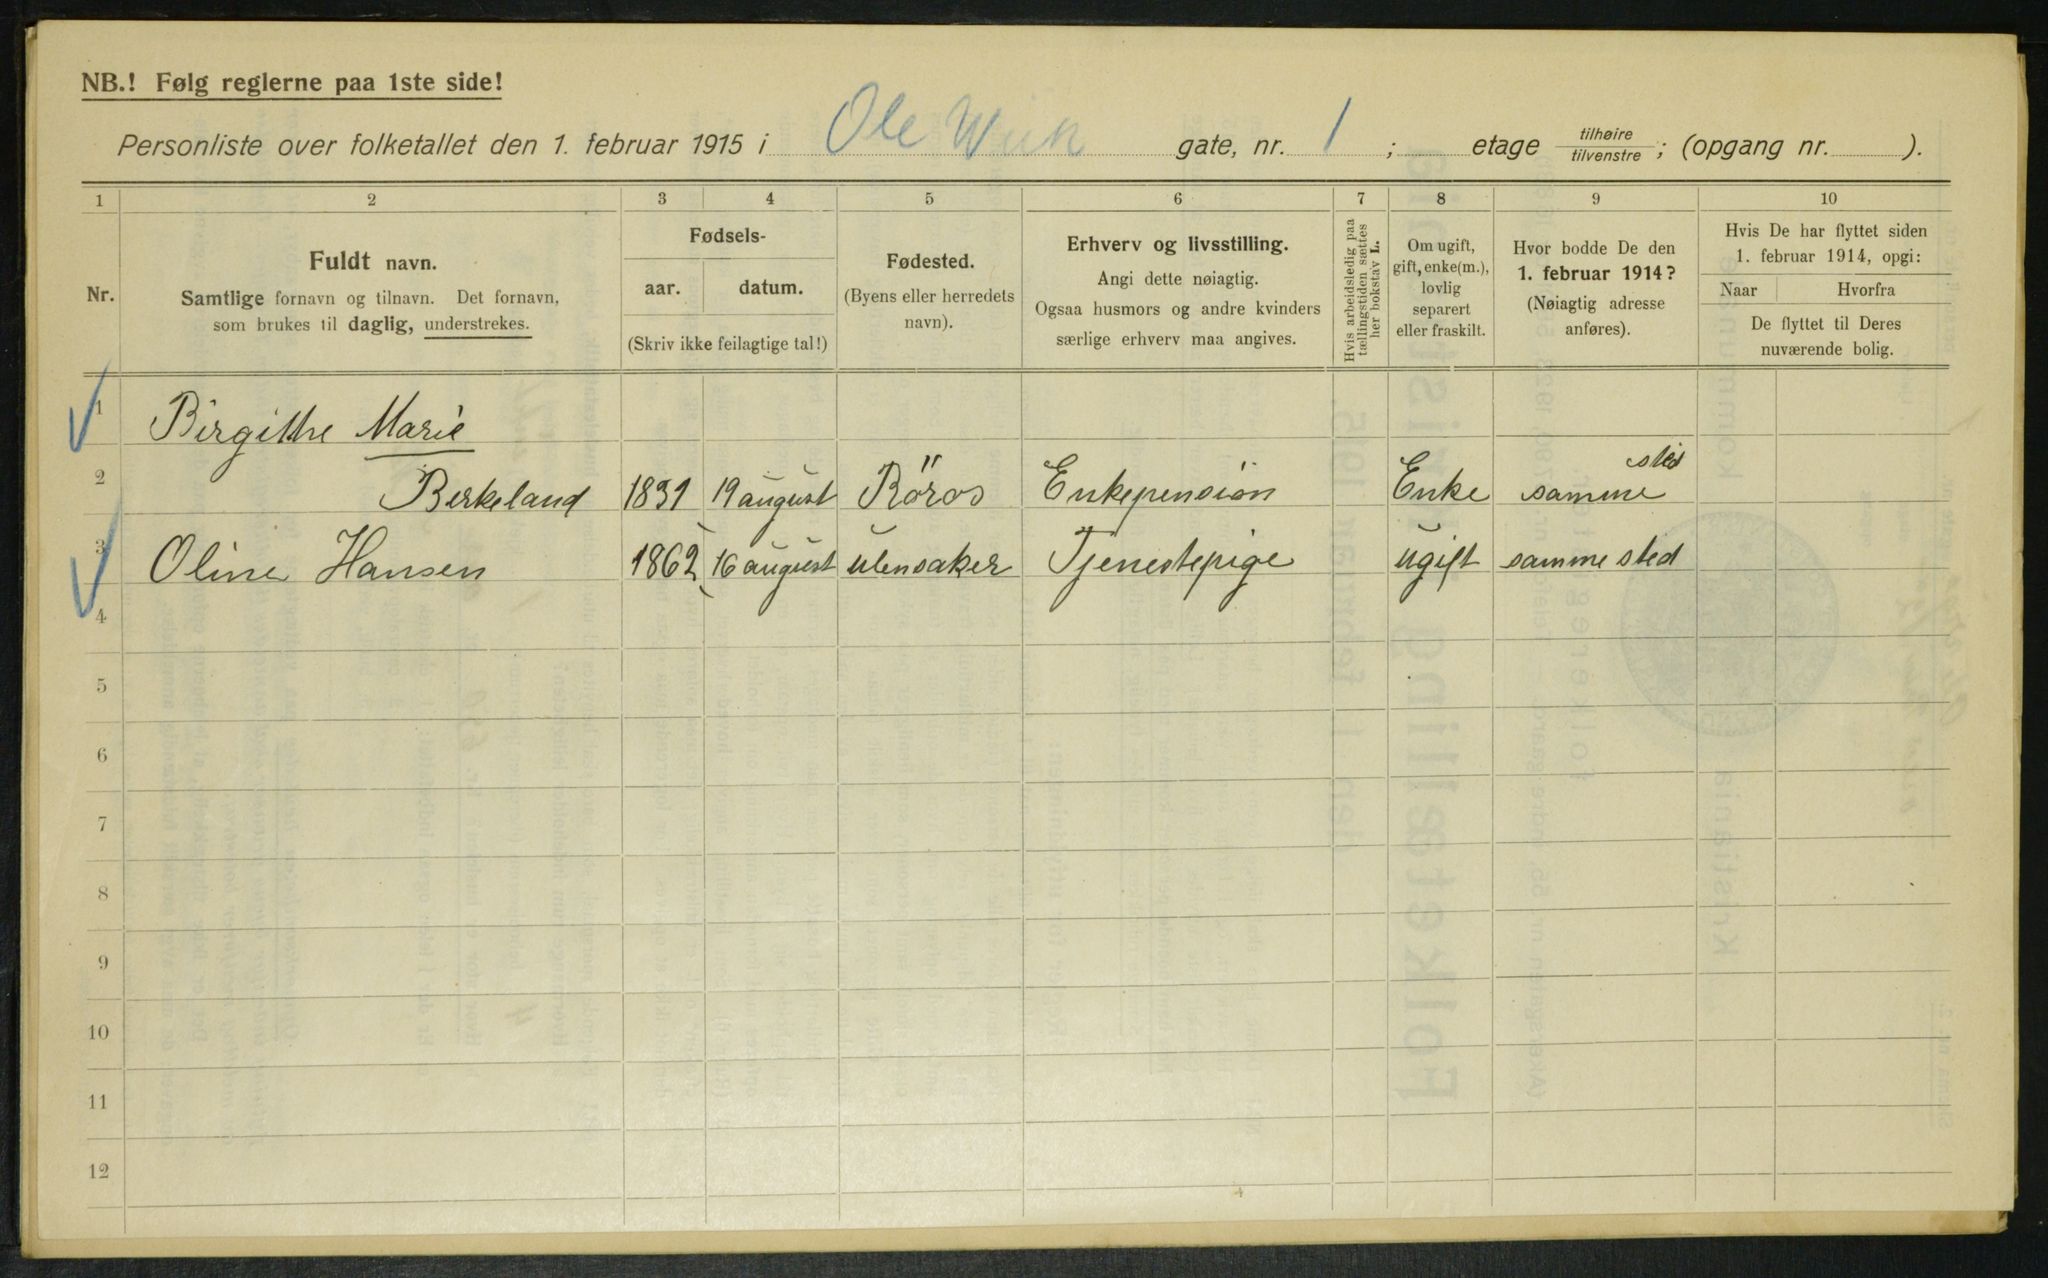 NB.! Følg reglerne paa 1ste side!
Personliste over folketallet den 1. februar 1915 i Ole Wiik gate, nr. 1 ; etage tilhøire / tilvenstre ; (opgang nr. ).
1 2 3 4 5 6 7 8 9 10
Nr.
Fuldt navn.
Samtlige fornavn og tilnavn. Det fornavn,
som brukes til daglig, understrekes.
Fødsels-
aar. datum.
(Skriv ikke feilagtige tal!)
Fødested.
(Byens eller herredets
navn).
Erhverv og livsstilling.
Angi dette nøiagtig.
Ogsaa husmors og andre kvinders
særlige erhverv maa angives.
Hvis arbeidsledig paa
tællingstiden sættes
her bokstav L.
Om ugift,
gift, enke(m.),
lovlig
separert
eller fraskilt.
Hvor bodde De den
1. februar 1914?
(Nøiagtig adresse
anføres).
Hvis De har flyttet siden
1. februar 1914, opgi:
Naar Hvorfra
De flyttet til Deres
nuværende bolig.
1 Birgithe Marie
2 Berkeland 1831 19 august Röros Enkepension Enke samme sted
3 Oline Hansen 1862 16 august ulensaker Tjenestepige ugift samme sted
4
5
6
7
8
9
10
11
12